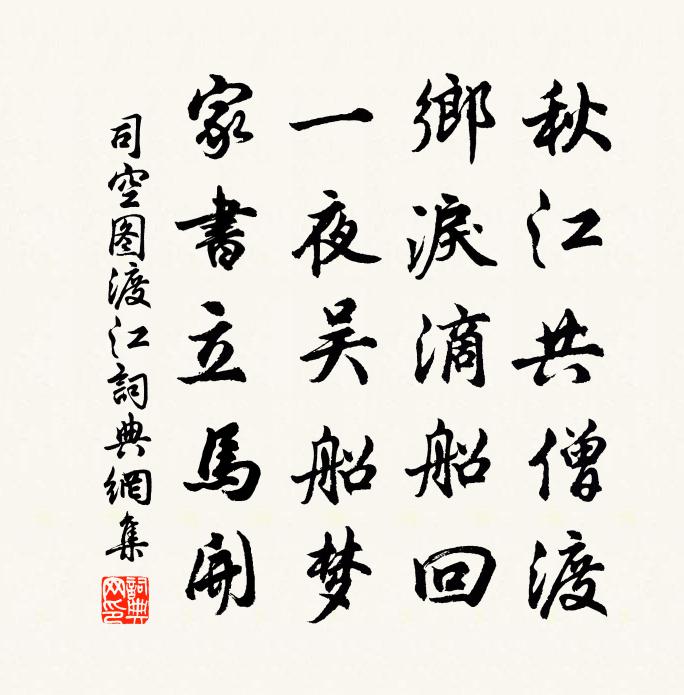 秋江共僧渡
鄉淚滴船回
一夜吴船梦
家書立馬開
司空图渡江詞典網集
詞典網印